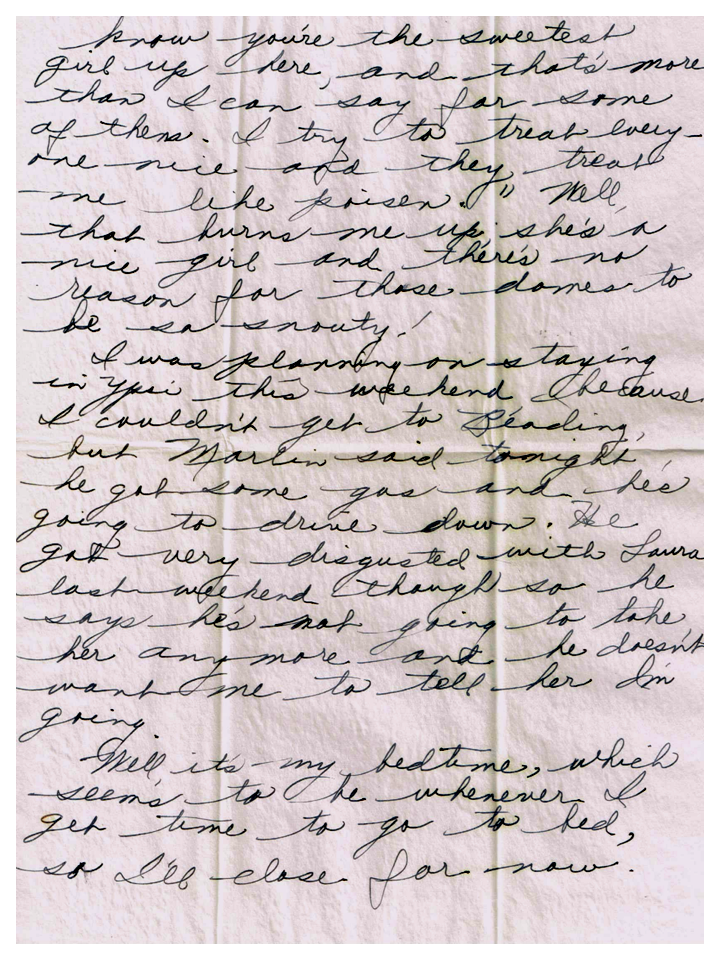 know you're the sweetest
girl up here, and that's more
than I can say for some
of them. I try to treat every-
one nice and they treat
me like poisen." Well,
that burns me up; she's a
nice girl and there's no
reason for those dames to
be so snouty!
I was planning on staying
in Ypsi this weekend because
I couldn't get to Reading,
but Marlin said tonight,
he got some gas and he's
going to drive down. He
got very disgusted with Laura
last weekend though so he
says he's not going to take
her any more and he doesn't
want me to tell her I'm
going
Well it's my bedtime, which
seems to be whenever I
get time to go to bed,
so I'll close for now.